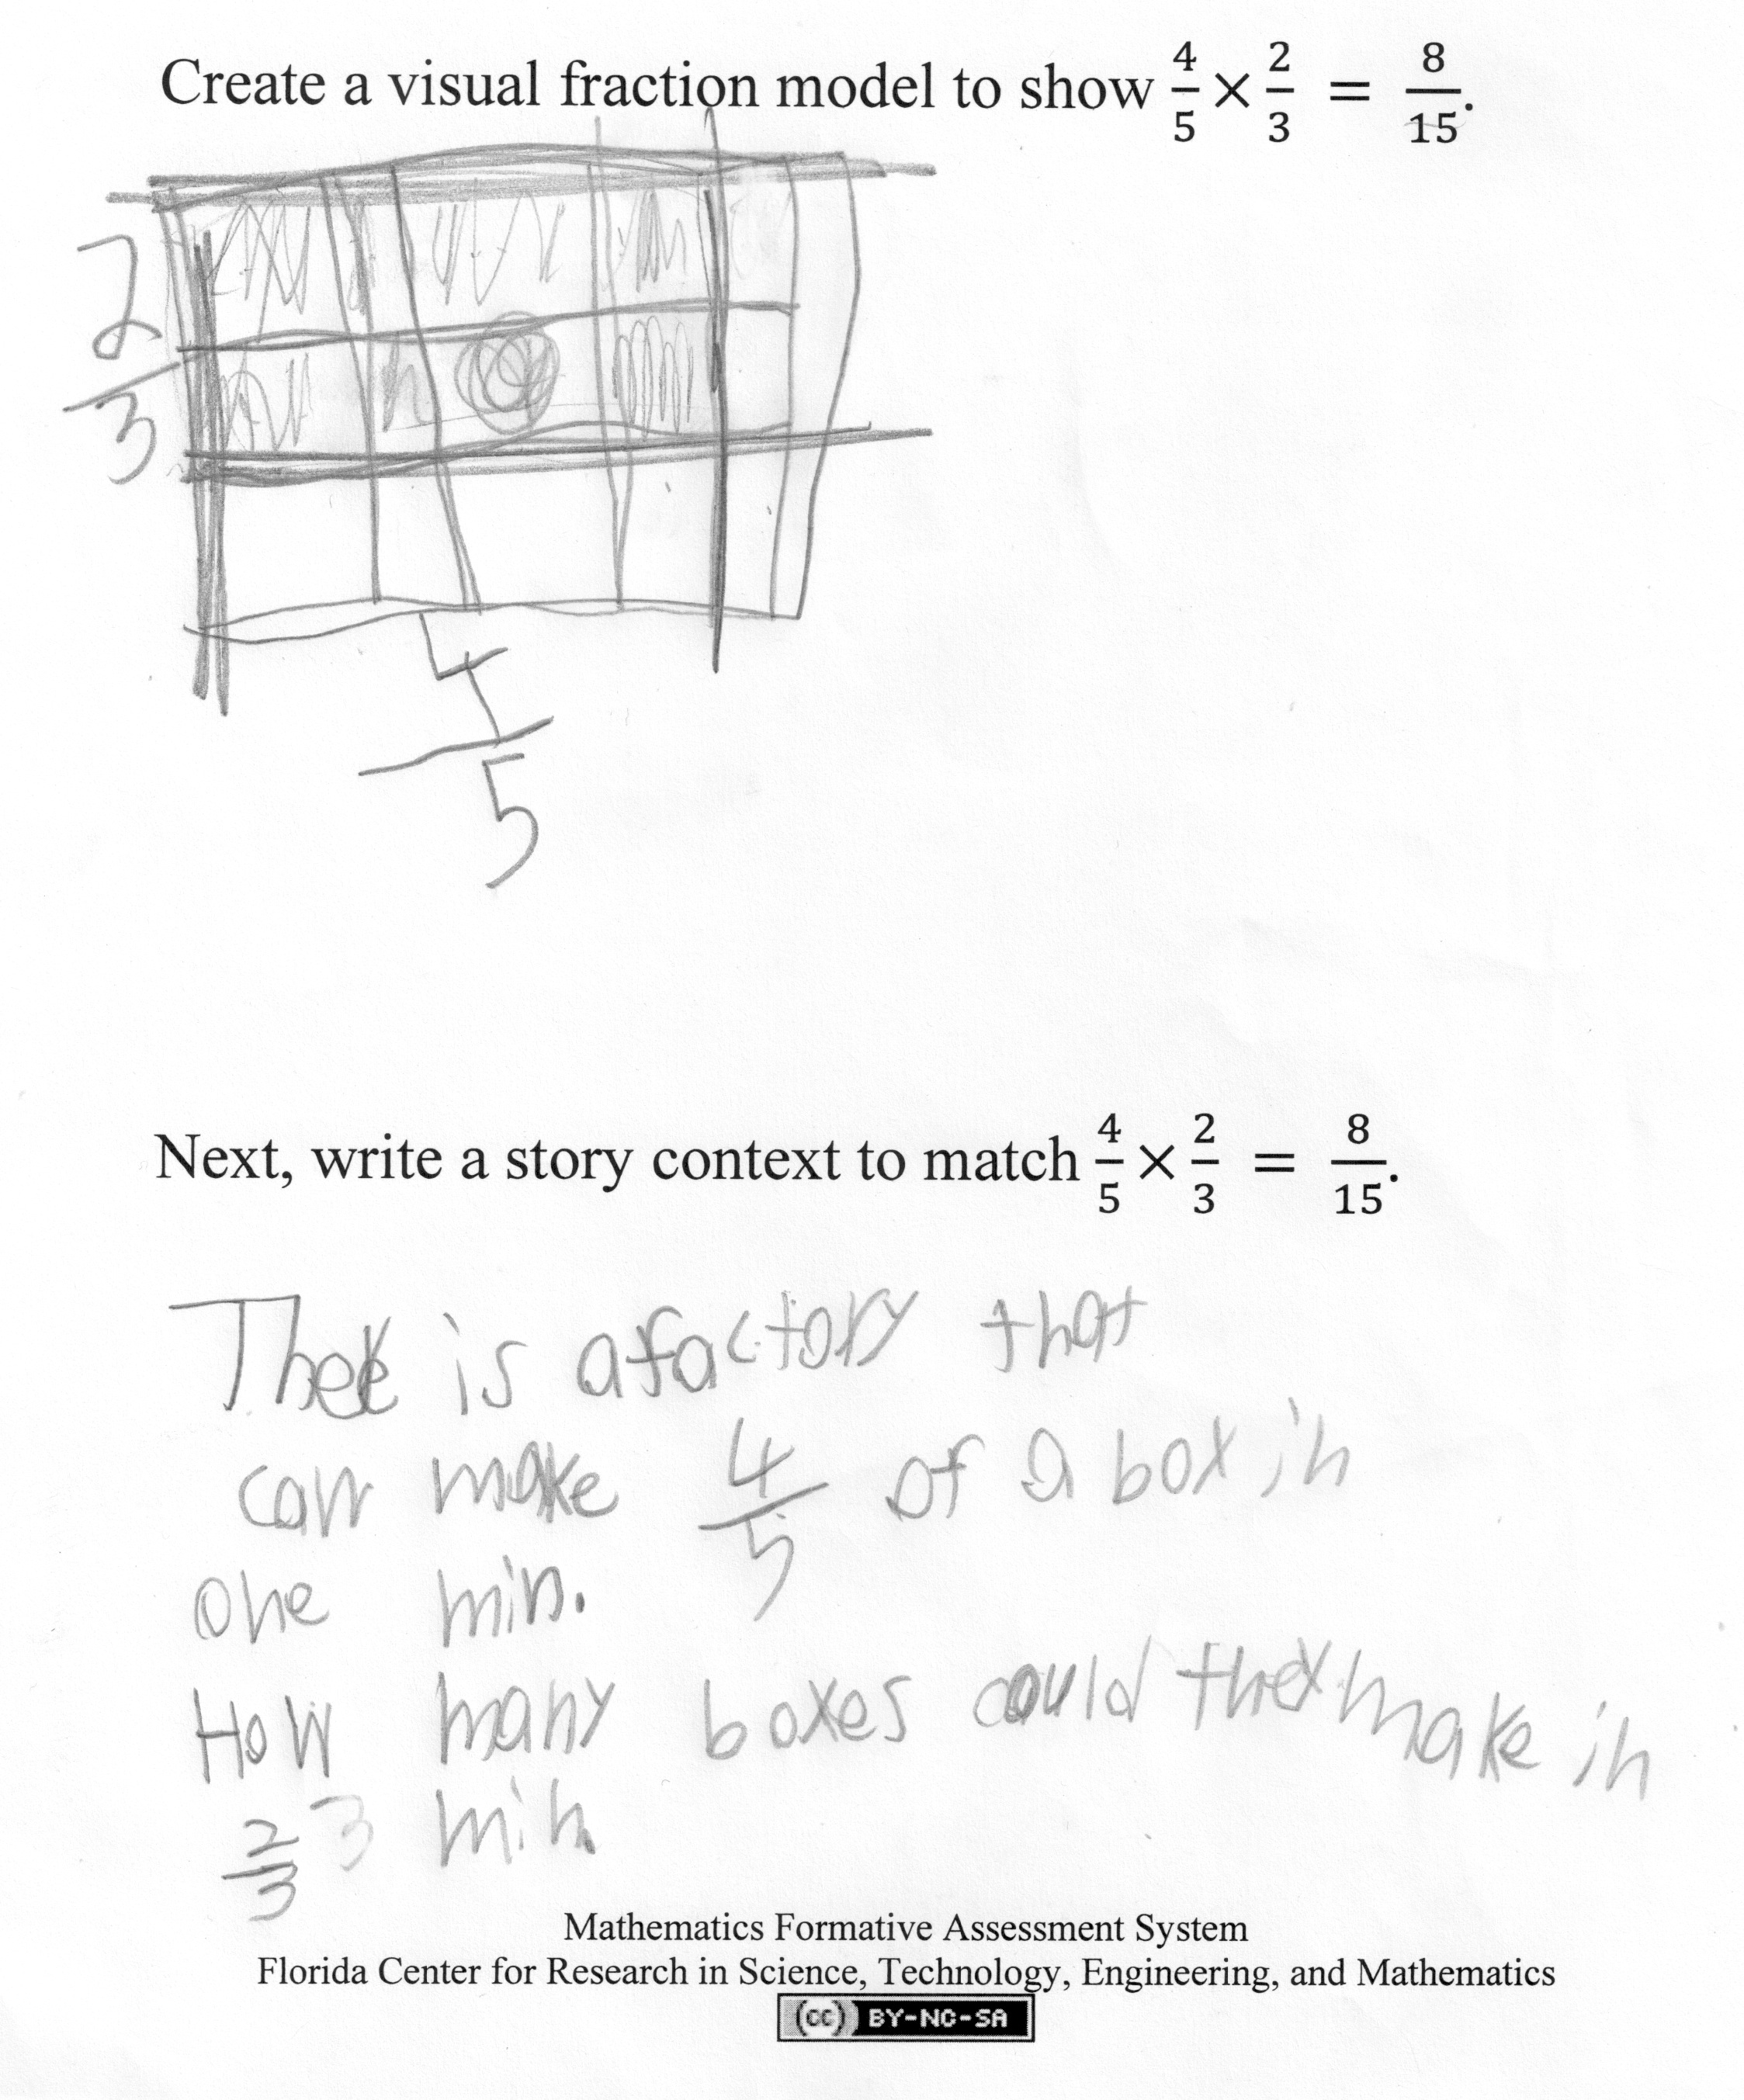 Create a visual fraction model to show 4/5 × 2/3 = 8/15.
2/3
4/5
Next, write a story context to match 4/5 × 2/3 = 8/15.
There is a factory that
can make 4/5 of a box in
one min.
How many boxes could they make in
2/3 3 min.
Mathematics Formative Assessment System
Florida Center for Research in Science, Technology, Engineering, and Mathematics
(cc) BY-NC-SA